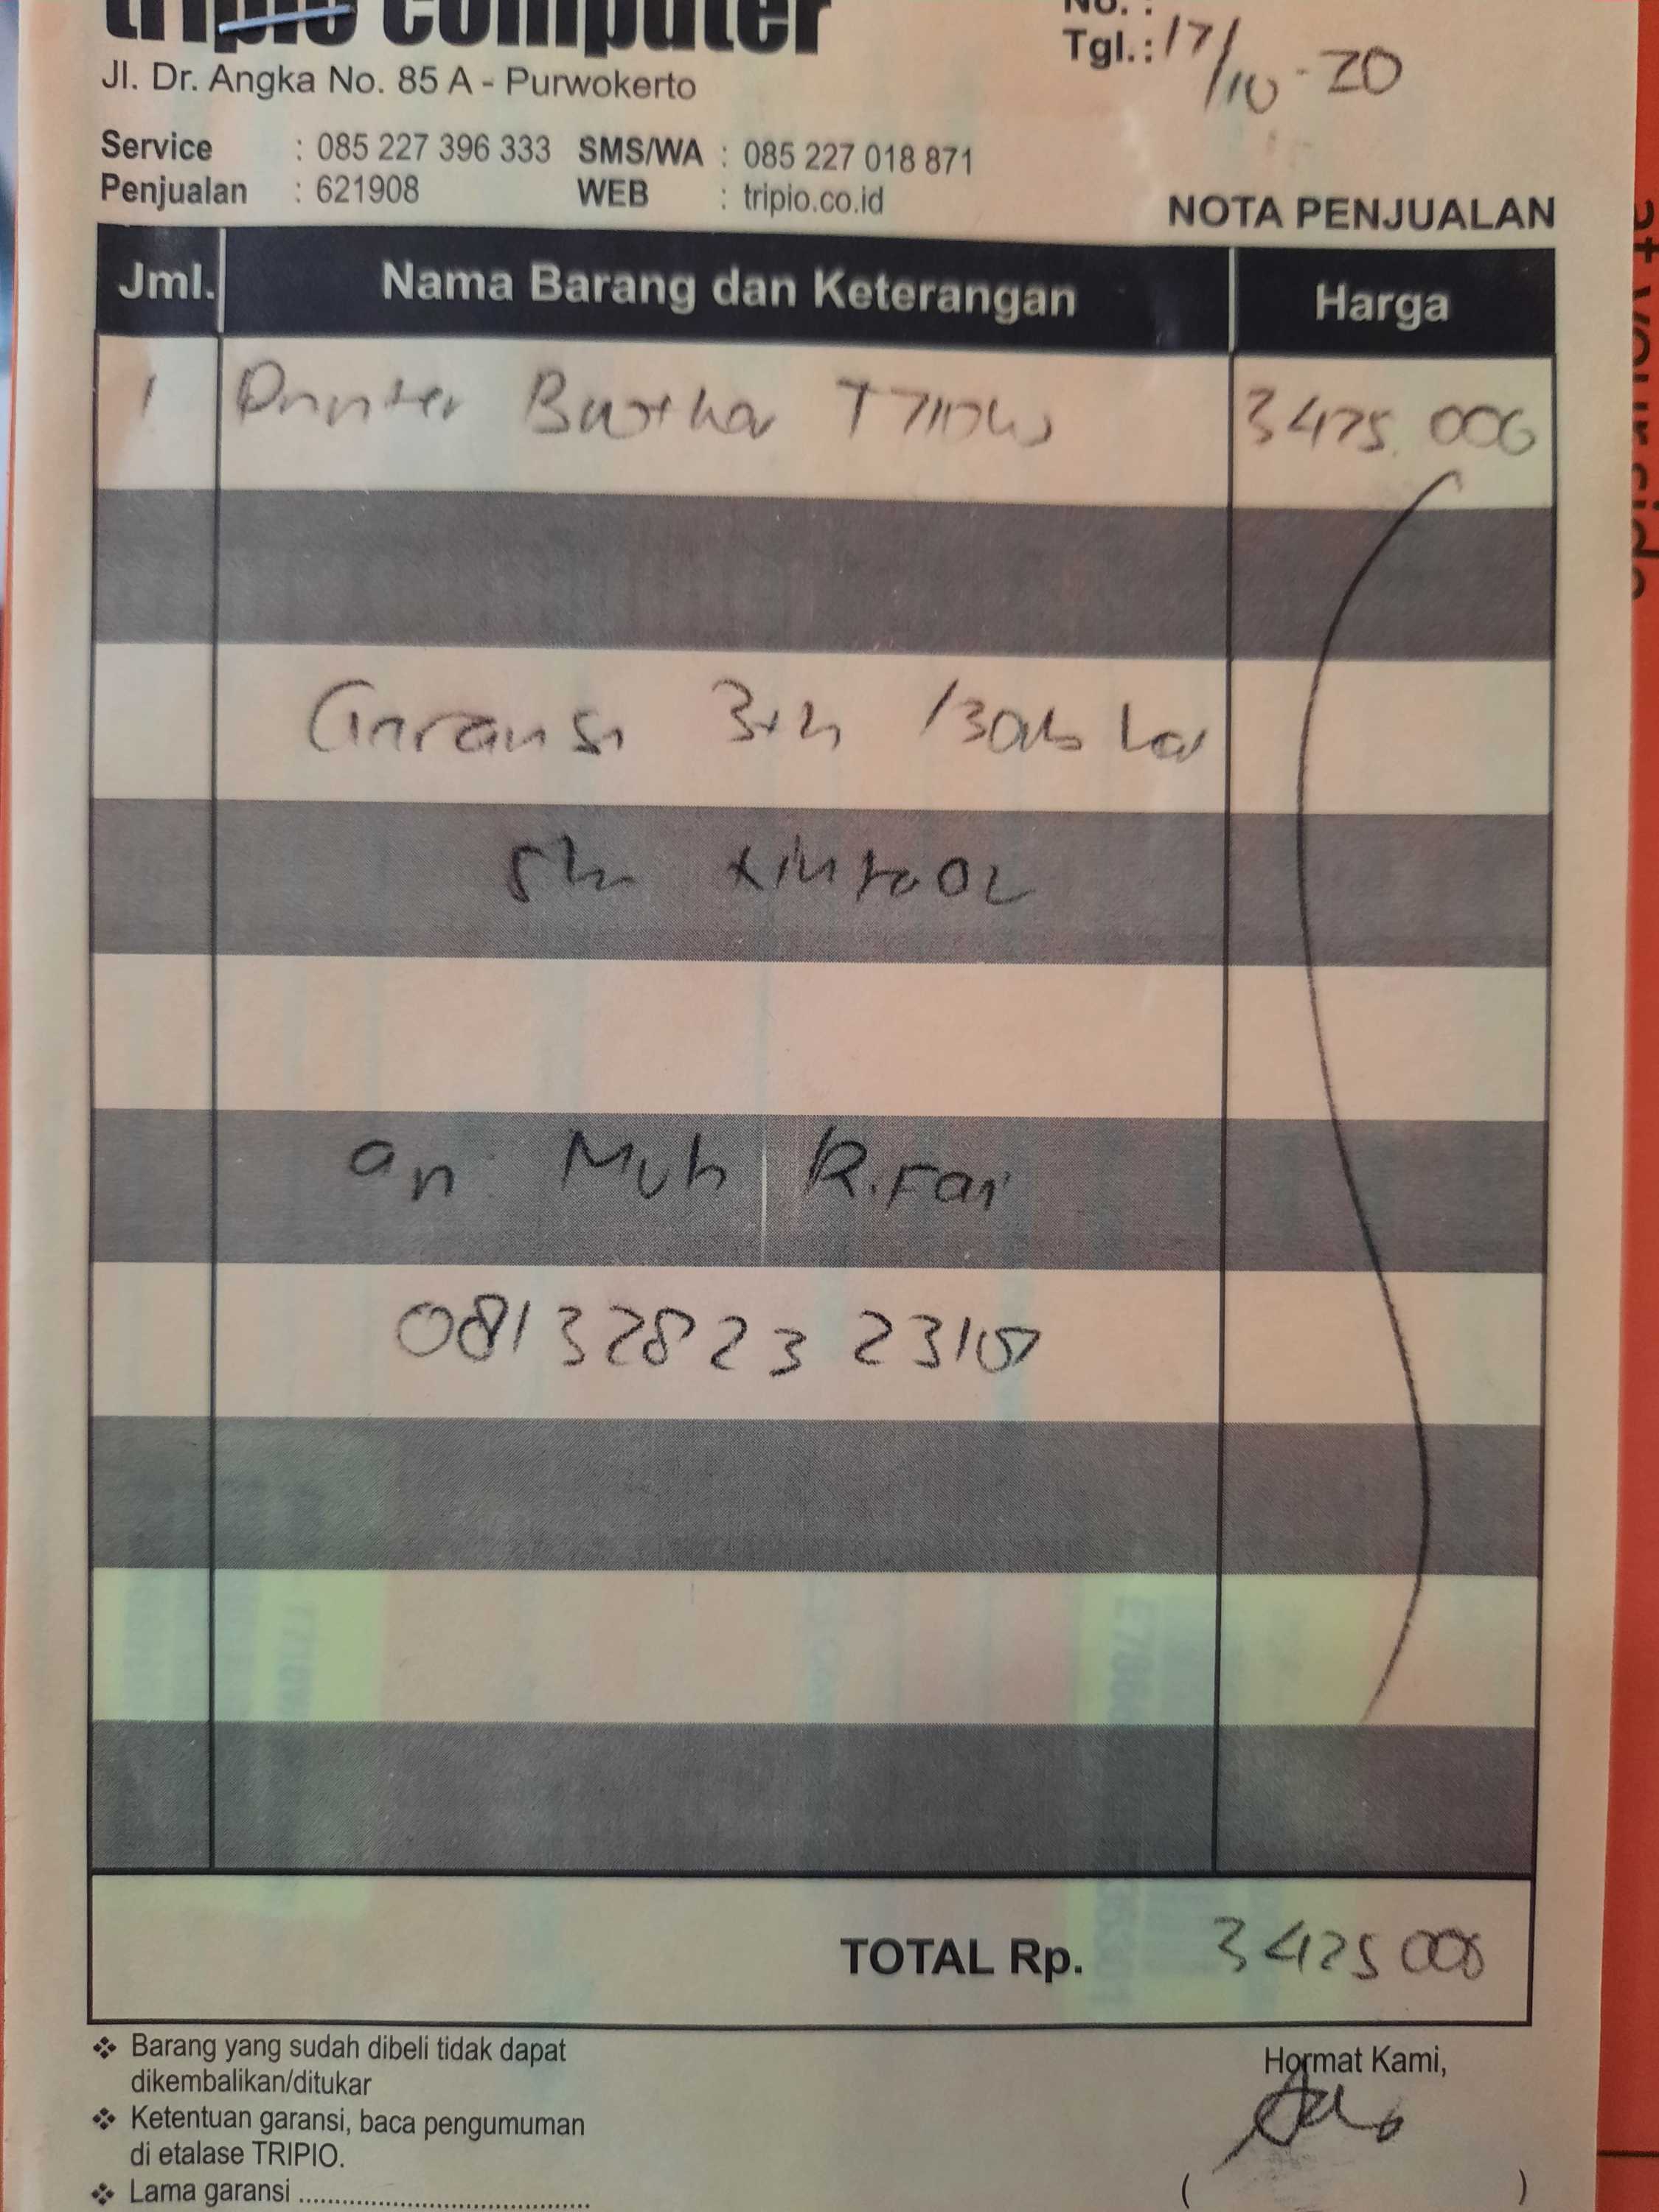 tripio computer
No. :
Tgl.: 17/10-20
Jl. Dr. Angka No. 85 A - Purwokerto
Service : 085 227 396 333 SMS/WA : 085 227 018 871
Penjualan : 621908 WEB : tripio.co.id
NOTA PENJUALAN
Jml. Nama Barang dan Keterangan Harga
1 Printer Brother T710W 3425.000
Garansi 3th /30rb lbr
an Muh Rifai
TOTAL Rp. 3425000
❖ Barang yang sudah dibeli tidak dapat
dikembalikan/ditukar
❖ Ketentuan garansi, baca pengumuman
di etalase TRIPIO.
❖ Lama garansi
Hormat Kami,
( )